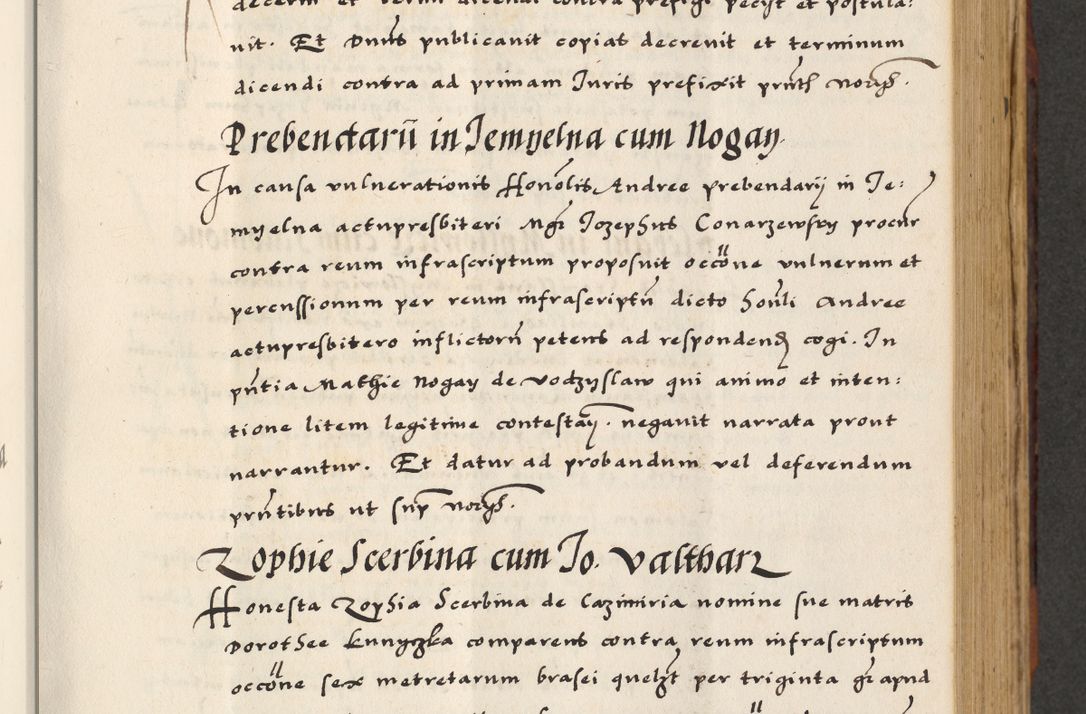 decerni et termi dicendi contra prefigi petiit et postula:
vit. Et Dnūs publicavit copias decrevit et terminum
dicendi contra ad primam Iuris prefixit pnth
Prebendarii in Iemyelna cum Nogay.
In causa vulnerationis Honolis Andree prebendarij in Ie:
myelna actupresbiteri Mgr Iozephus Conarzewsky procur
contra reum infrascriptum proposuit occōne vulnerum et
percussionum per reum infrascriptū dicto honli Andree
actupresbitero inflictorū petens ad respondend cogi. In
pntia Mathie Nogay de vodzyslaw qui animo et inten:
tione litem legitime contestan. negavit narrata prout
narrantur. Et datur ad probandum vel deferendum
prntibus ut sup
Zophie Scerbina cum Io. Valtharz
Honesta Zophia Scerbina de Cazimiria nomine sue matris
Dorothee Kunyczka comparens contra reum infrascriptum
occōne sex metretarum brasei quelzt per triginta gr apud